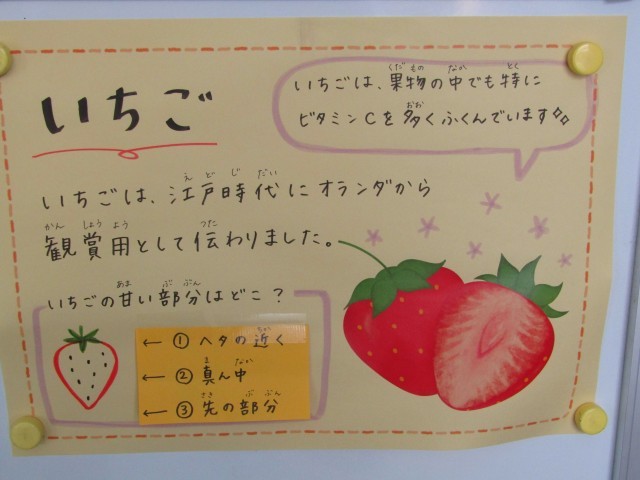 いちご
いちごは、果物の中でも特に
ビタミンCを多くふくんでいます
いちごは、江戸時代にオランダから
観賞用として伝わりました。
いちごの甘い部分はどこ？
← ① ヘタの近く
← ② 真ん中
← ③ 先の部分